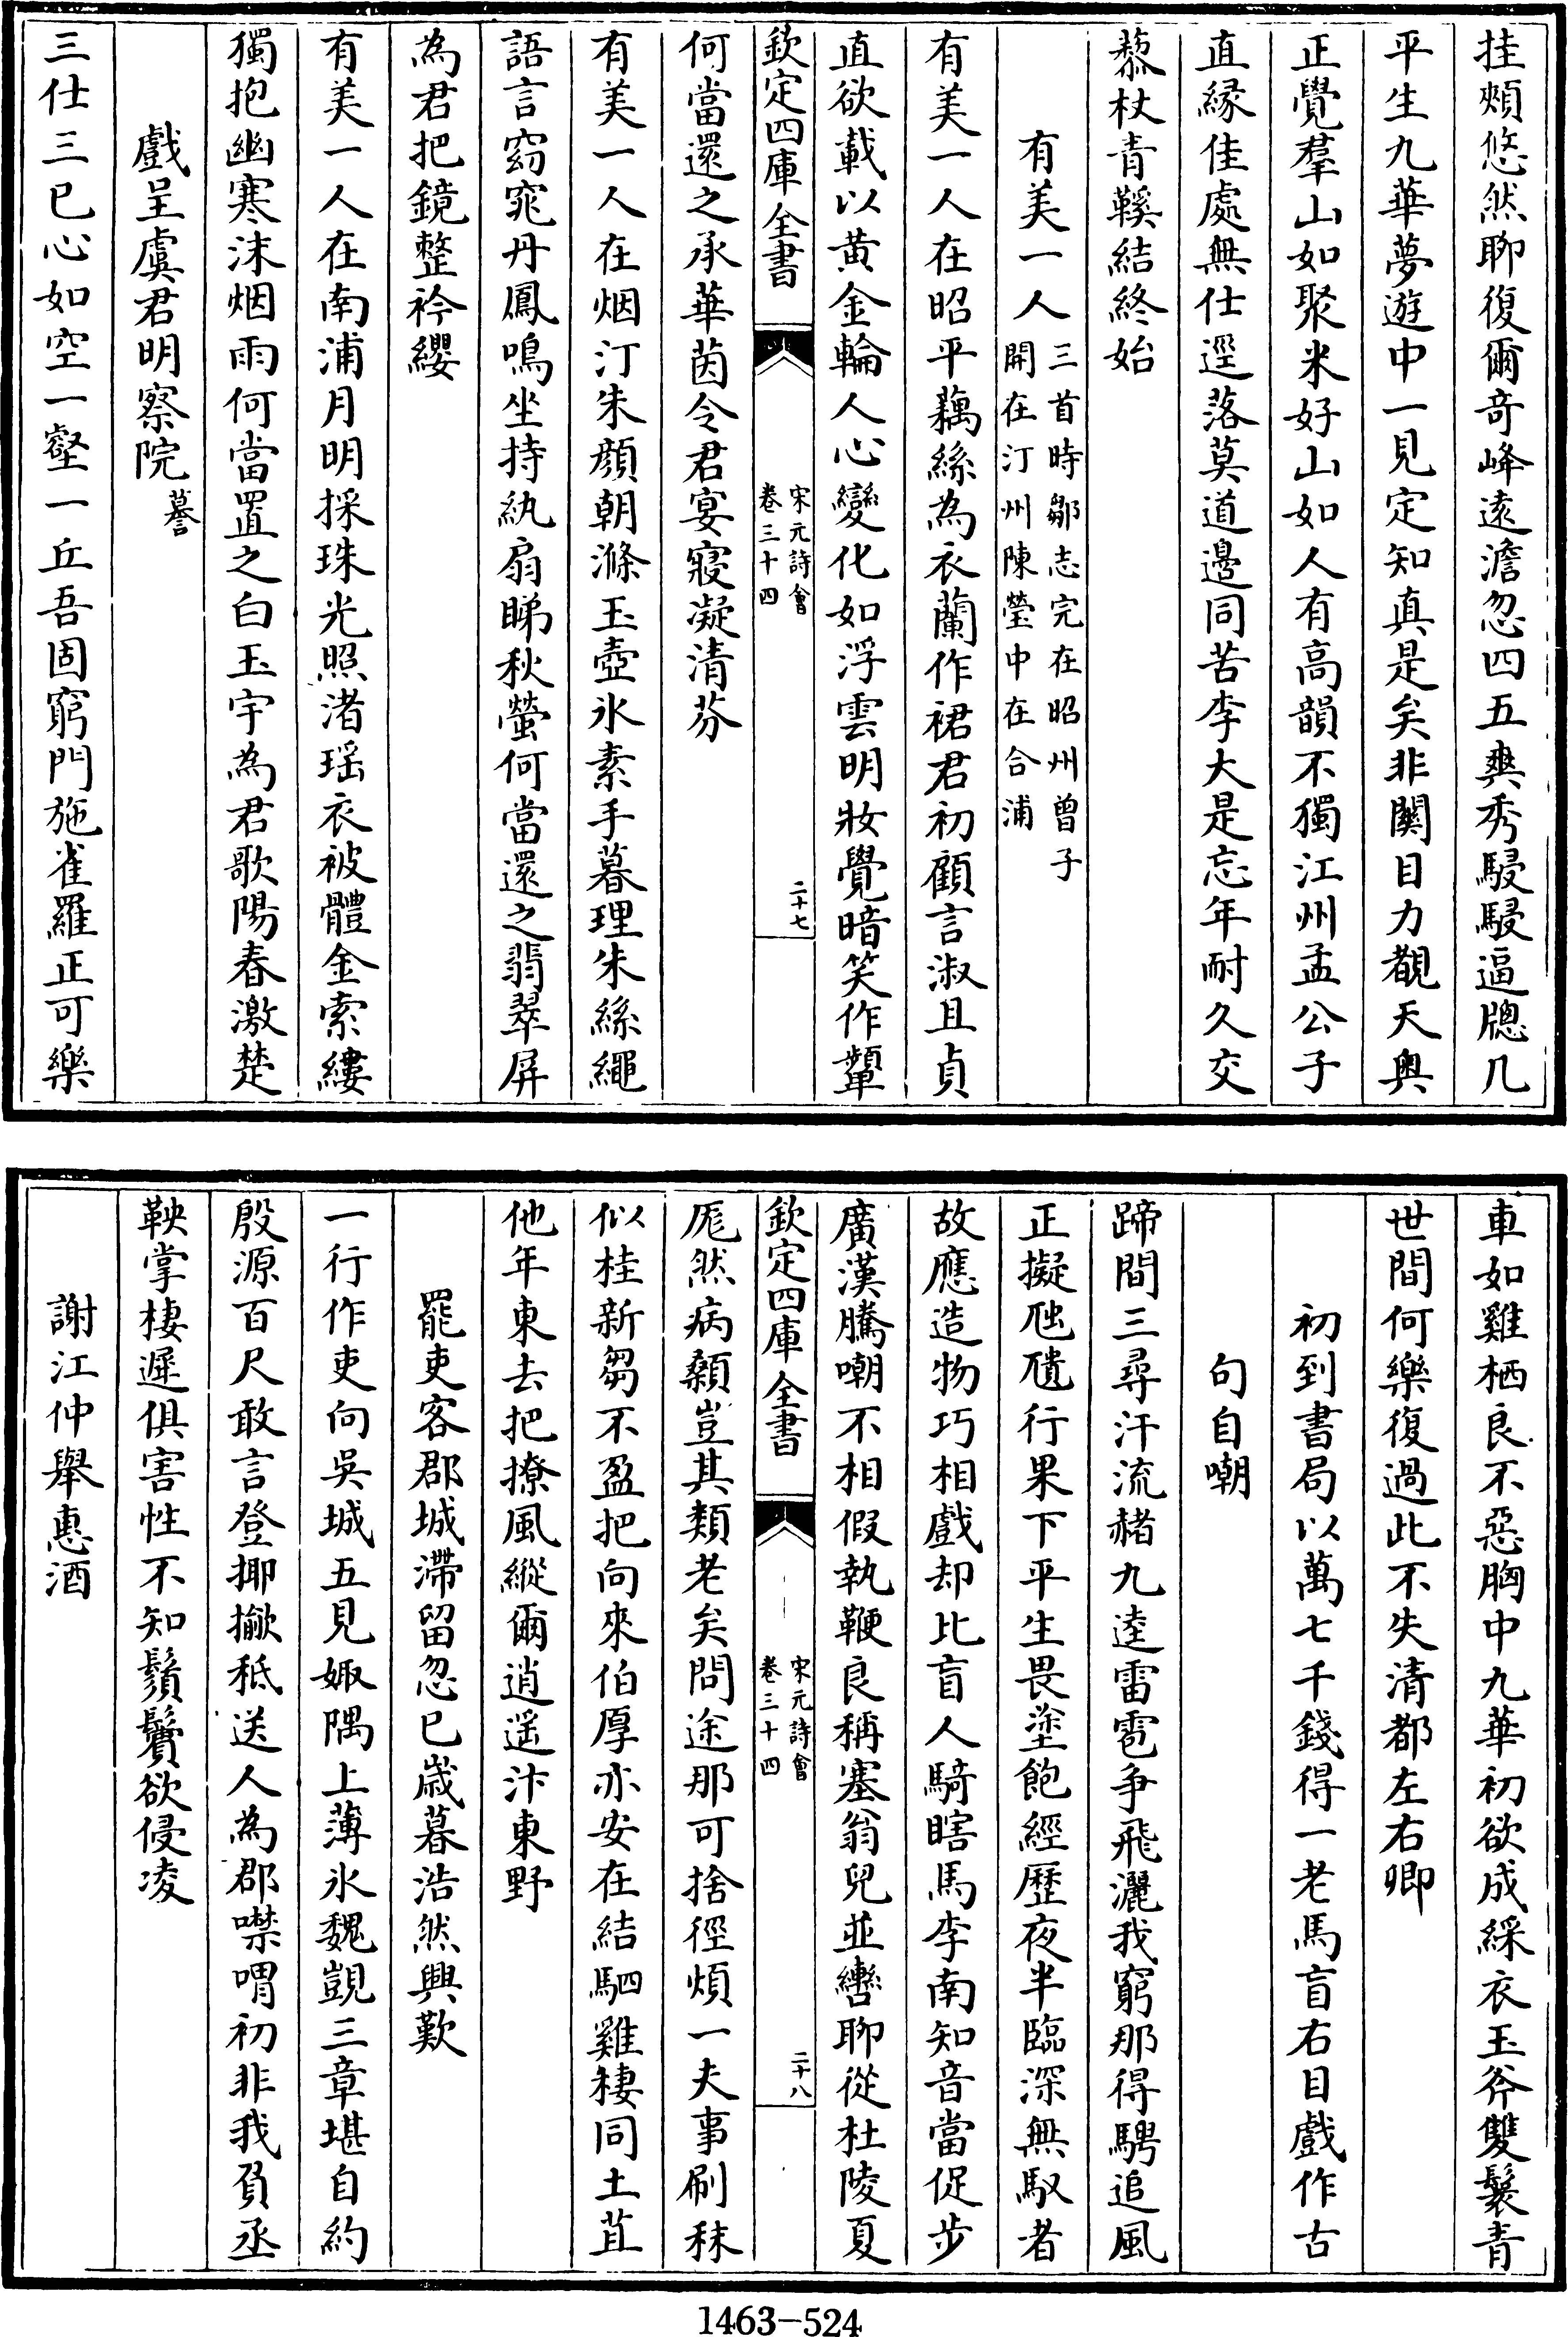 挂頰悠然聊復爾奇峰遠澹忽四五爽秀駸駸逼牕几
平生九華夢遊中一見定知真是矣非關目力覩天奥
正覺羣山如聚米好山如人有高韻不獨江州孟公子
直縁佳處無仕逕落莫道邊同苦李大是忘年耐久交
藜杖青鞵結終始
有美一人三首時鄒志完在昭州曾子
開在汀州陳瑩中在合浦
有美一人在昭平藕絲為衣蘭作裙君初顧言淑且貞
直欲載以黄金輪人心變化如浮雲明妝覺暗笑作顰
欽定四庫全書
宋元詩會
卷三十四
二十七
何當還之承華茵令君宴寢凝清芬
有美一人在烟汀朱顔朝滌玉壺氷素手暮理朱絲繩
語言窈窕丹鳳鳴坐持紈扇睇秋螢何當還之翡翠屏
為君把鏡整衿纓
有美一人在南浦月明採珠光照渚瑶衣被體金索縷
獨抱幽寒沫烟雨何當置之白玉宇為君歌陽春激楚
戲呈虞君明察院謩
三仕三已心如空一壑一丘吾固窮門施雀羅正可樂
車如雞栖良不惡胸中九華初欲成綵衣玉斧雙鬟青
世間何樂復過此不失清都左右卿
初到書局以萬七千錢得一老馬盲右目戲作古
句自嘲
蹄間三尋汗流赭九逵雷雹争飛灑我窮那得騁追風
正擬虺隤行果下平生畏塗飽經歷夜半臨深無馭者
故應造物巧相戲却比盲人騎瞎馬李南知音當促步
廣漢騰嘲不相假執鞭良稱塞翁兒並轡聊從杜陵夏
欽定四庫全書
宋元詩會
卷三十四
二十八
厖然病顙豈其類老矣問途那可捨徑煩一夫事刷秣
似桂新芻不盈把向來伯厚亦安在結駟雞棲同土苴
他年東去把撩風縱爾逍遥汴東野
罷吏客郡城滯留忽已歲暮浩然興歎
一行作吏向吳城五見娵隅上薄氷魏覬三章堪自約
殷源百尺敢言登揶揄秪送人為郡噤喟初非我負丞
鞅掌棲遲俱害性不知鬚鬢欲侵凌
謝江仲舉惠酒
1463-524